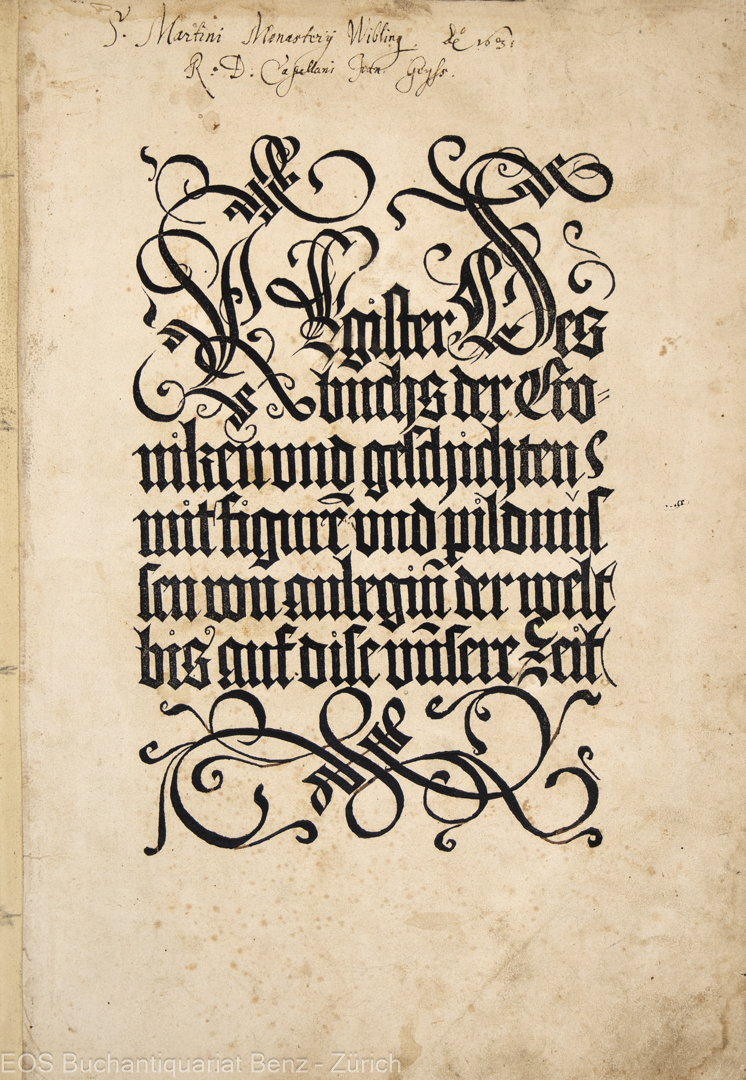 S. Martini Monasterij Wibling. Aō 1631
R. D. Capellani Joan. Geyss.
REgister Des
buchs der Cro-
niken und geschichten
mit figurē und pildnüs
sen von anbegiñ der welt
bis auf dise unsere Zeit
EOS Buchantiquariat Benz - Zürich